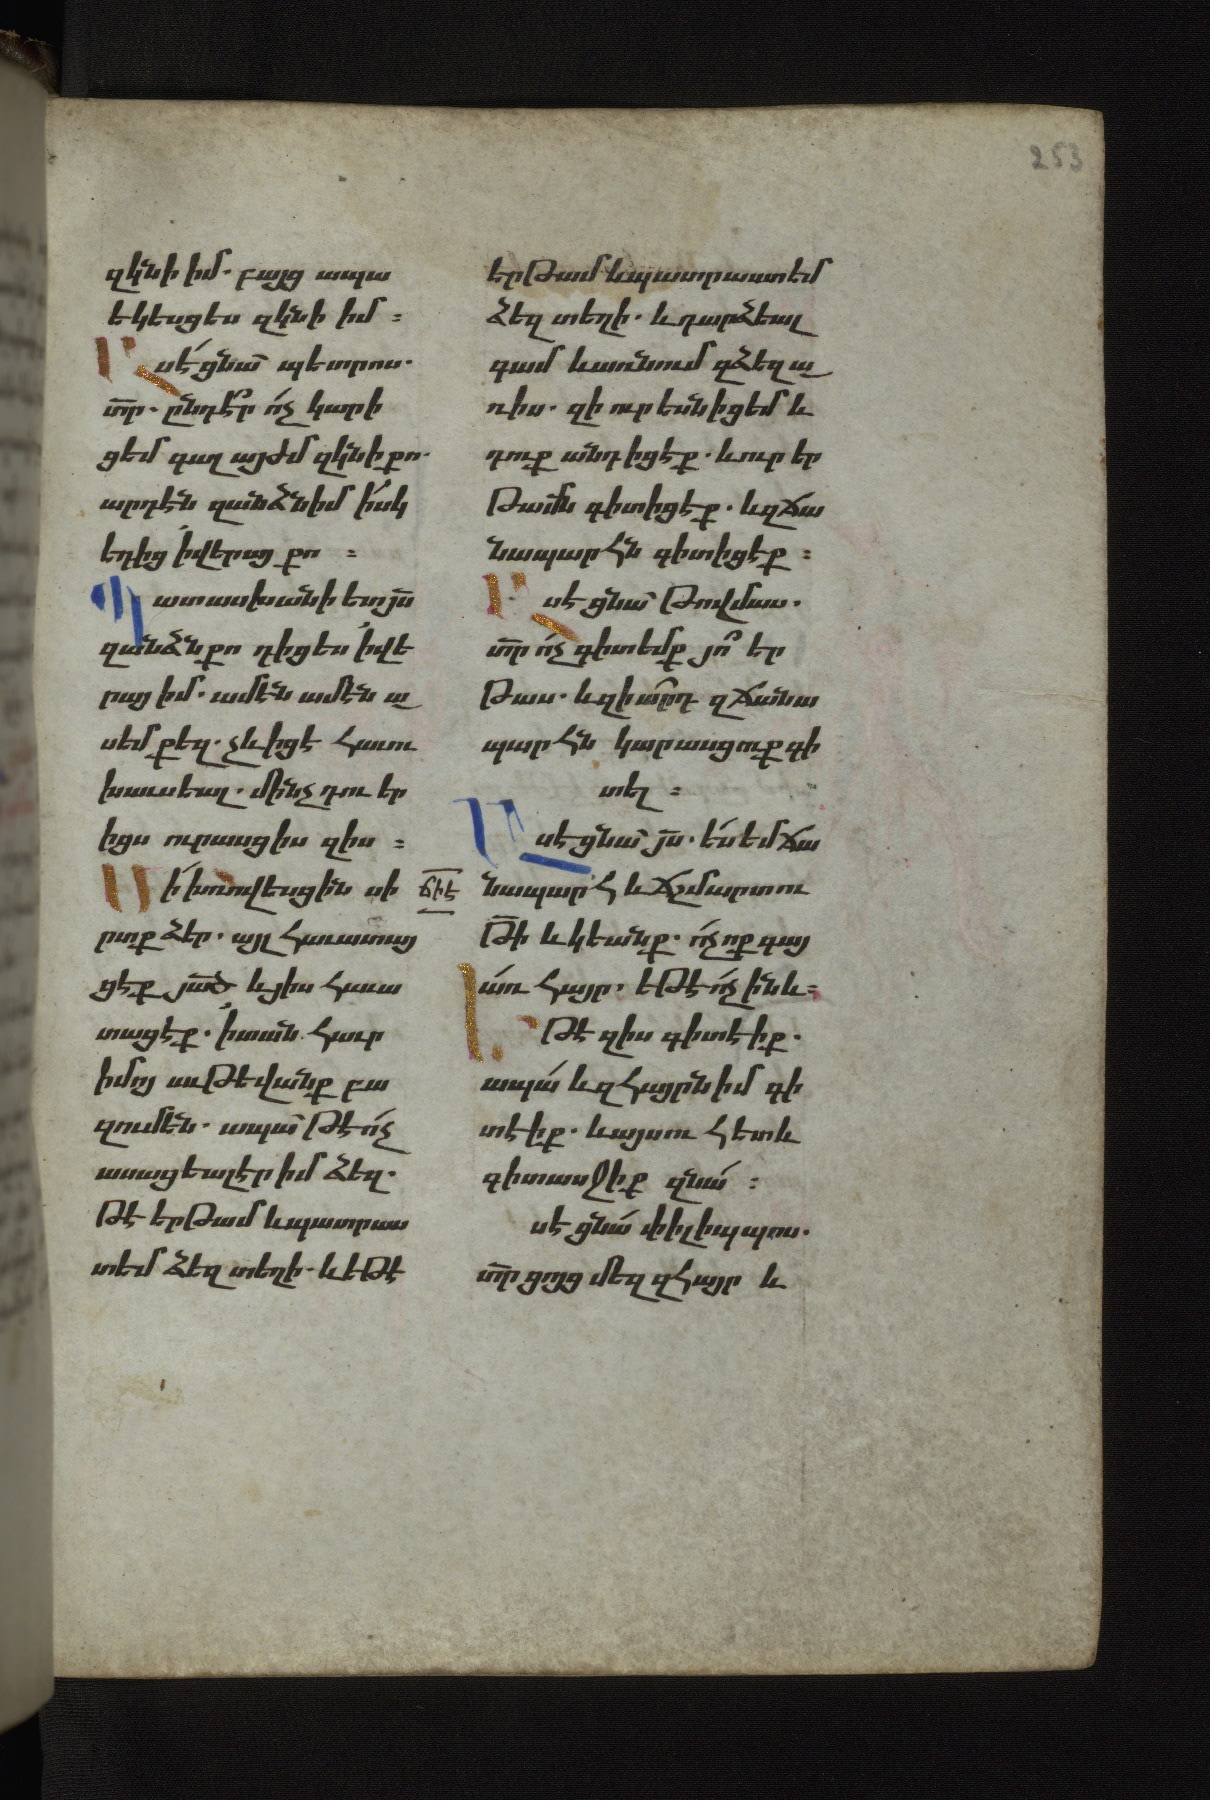 253
զկնի իմ. բայց ապա
եկեսցես զկնի իմ :
Ասէ ցնա պետրոս.
տր. ընդէ՞ր ոչ կարի
ցեմ գալ այժմ զկնի քո.
արդէն զանձն իմ իսկ
եդից ի վերայ քո :
Պատասխանի ետ յս
զանձն քո դիցես ի վե
րայ իմ. ամէն ամէն ա
սեմ քեզ. չև իցէ հաւու
խաւսեալ. մինչ դու եր
իցս ուրասցիս զիս :
Մի խռովեսցին սի
րտք ձեր. այլ հաւատայ
ցէք յած և յիս հաւա
տացէք. ի տան հաւր
իմոյ աւթեվանք բա
զումեն. ապա թէ ոչ
ասացեալ էր իմ ձեզ.
թէ երթամ և պատրաս
տեմ ձեզ տեղի. և եթէ
ճիէ
երթամ և պատրաստեմ
ձեզ տեղի. և դարձեալ
գամ և առնում զձեզ ա
ռիս. զի ուր եսն իցեմ և
դուք անդ իցէք. և ուր ես եր
թամն գիտիցէք. և զճա
նապարհն գիտիցէք :
Ասէ ցնա թովմաս.
տր ոչ գիտեմք յո՞ եր
թաս. և զիա՞րդ զճանա
պարհն կարասցուք գի
տել :
Ասէ ցնա յս. ես եմ ճա
նապարհ և ճշմարտու
թի և կեանք. ոչ ոք գայ
առ հայր. եթէ ոչ ինև :
Եթէ զիս գիտէիք.
ապա և զհայրն իմ գի
տէիք. և այսու հետև
գիտասջիք զնա :
սէ ցնա փիլիպպոս.
տր ցոյց մեզ զհայր և